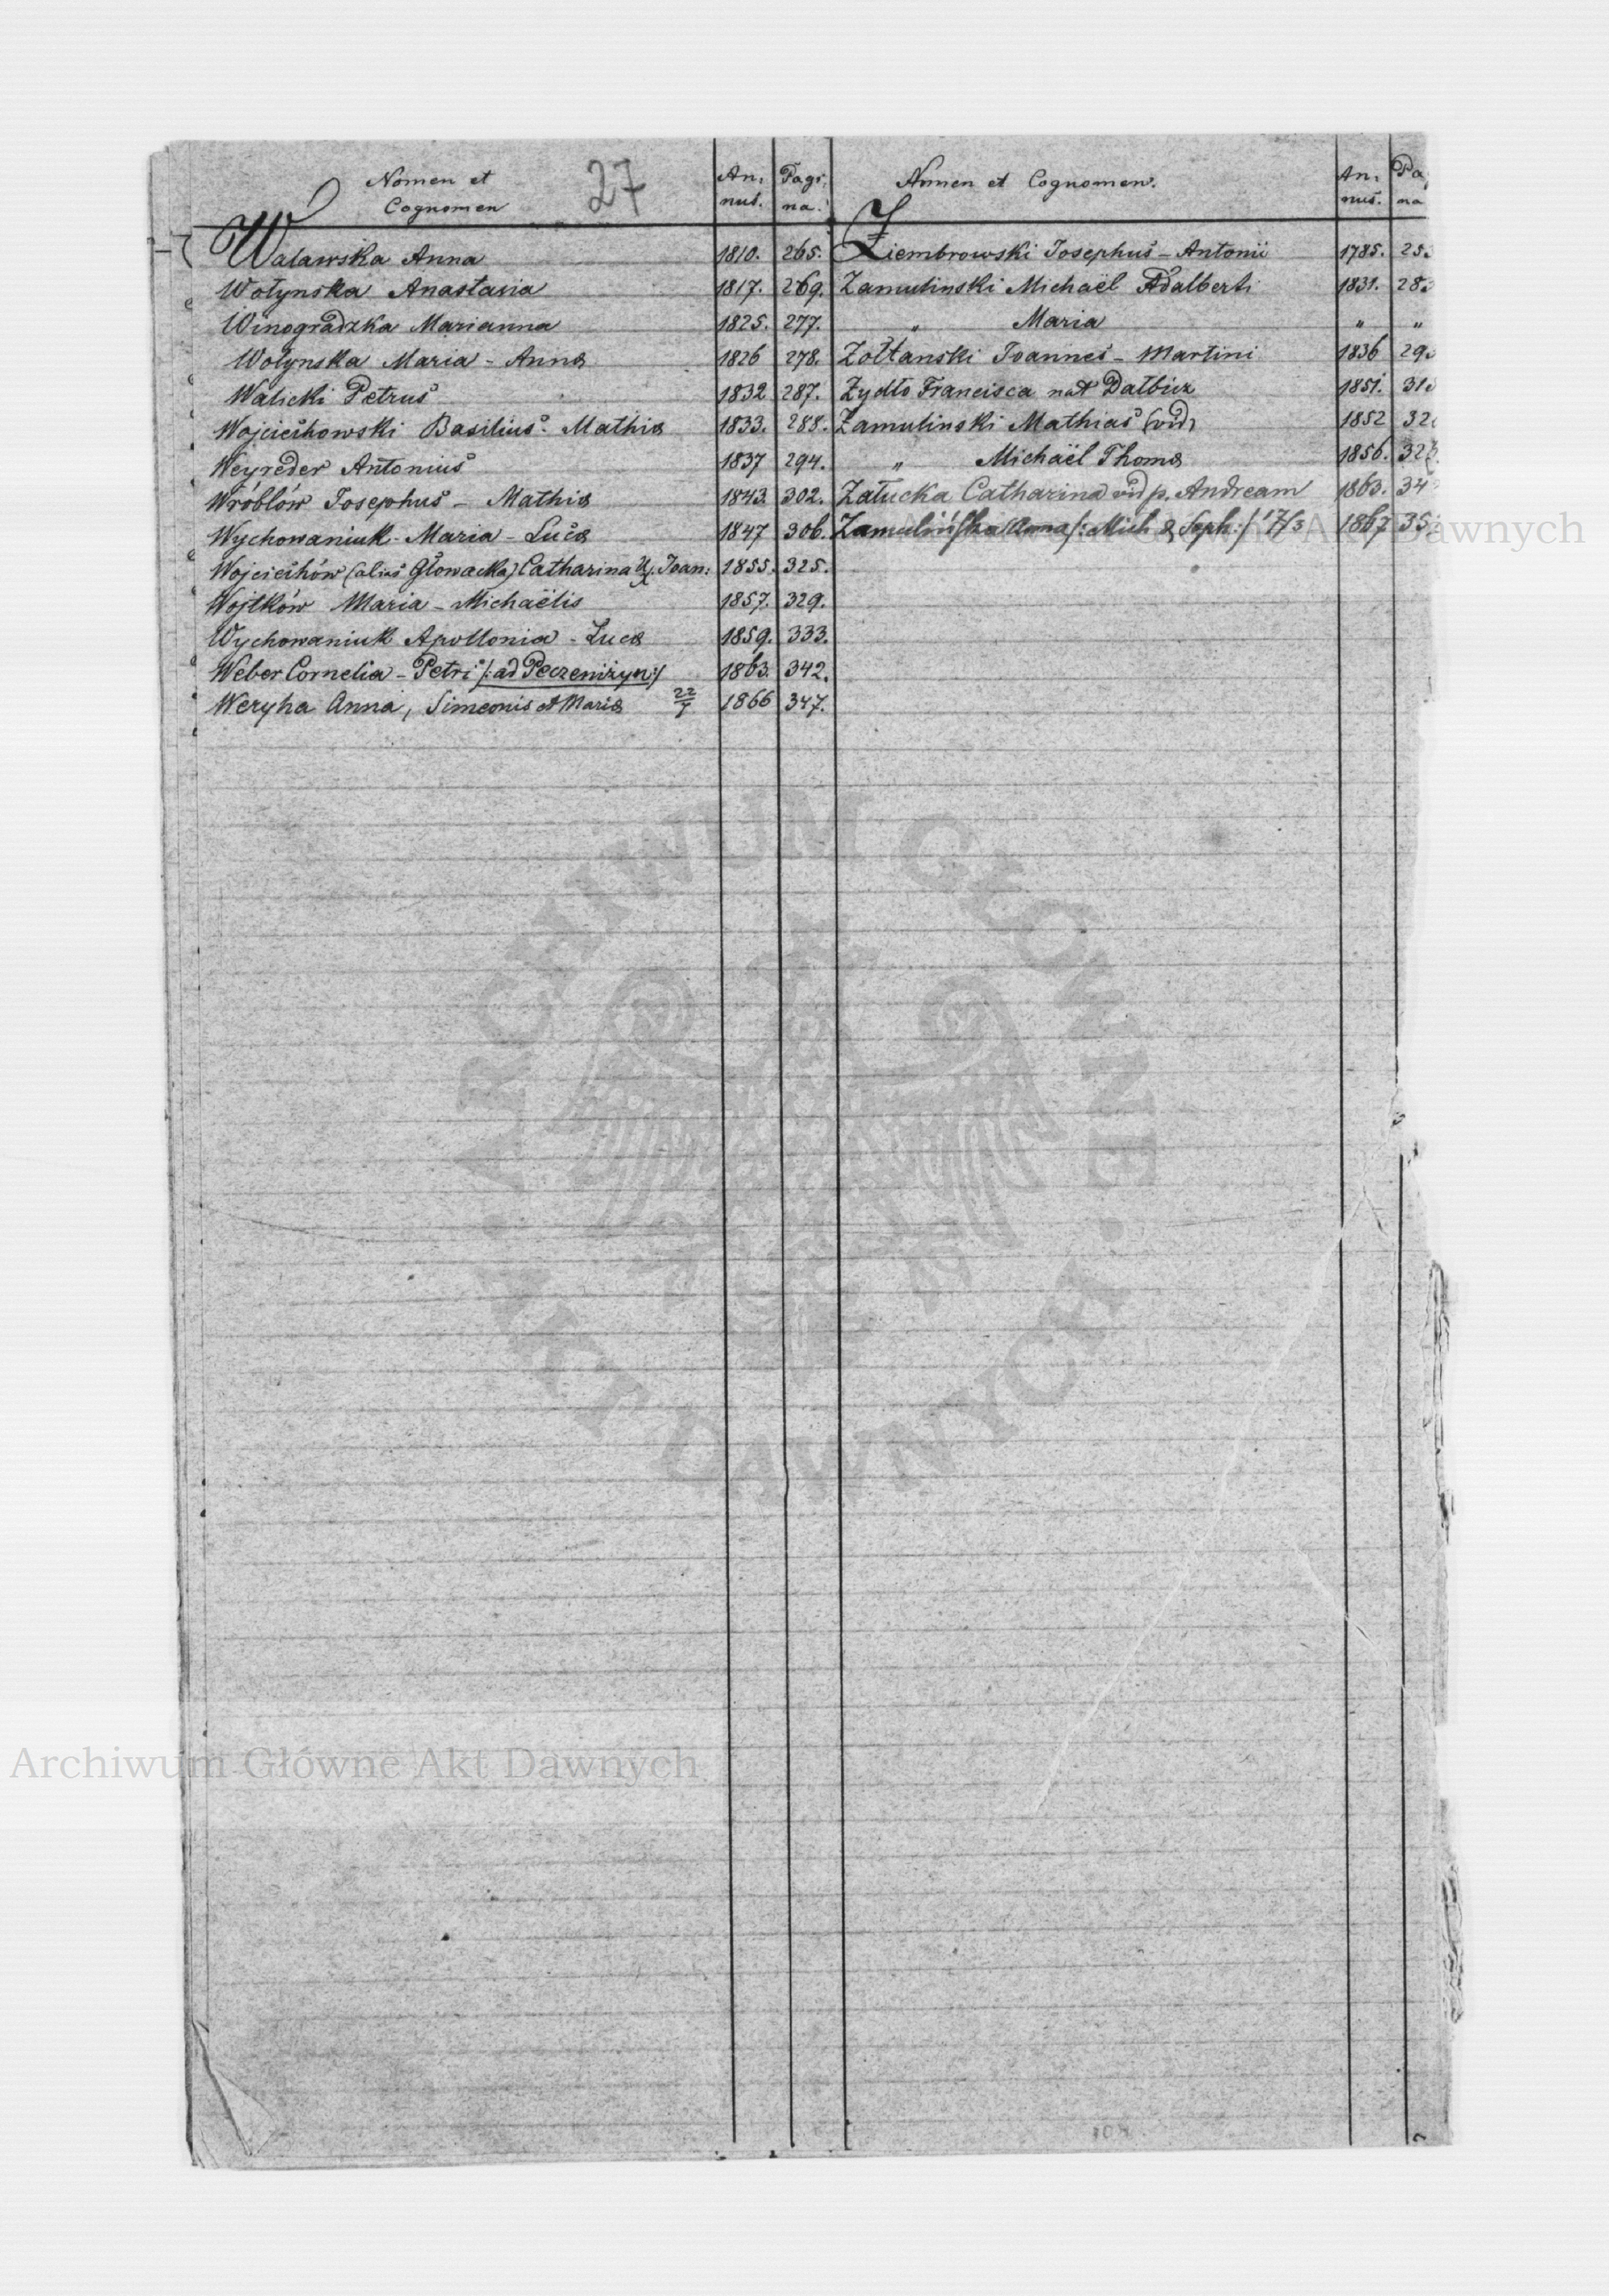 Nomen et
Cognomen
27
An,
nus.
Pagi,
na.
Walawska Anna 1810. 265.
Wołynska Anastasia 1817. 269.
Winogradzka Marianna 1825. 277.
Wołynska Maria - Annæ 1826 278.
Walicki Petrus 1832 287.
Wojciechowski Basilius. Mathiæ 1833. 288.
Weyreder Antonius 1837 294.
Wróblów Josephus - Mathiæ 1843. 302.
Wychowaniuk - Maria - Lucæ 1847 306.
Wojciechów (alias Głowacka) Catharina Ux. Joan: 1855. 325.
Wojtków Maria - Michaëlis 1857. 329.
Wychowaniuk Apollonia - Lucæ 1859. 333.
Weber Cornelia - Petri /: ad Peczeniżyn :/ 1863. 342.
Weryha Anna, Simeonis et Mariæ 22/7 1866 347.
Nomen et Cognomen.
An,
nus.
Pa
na
Ziembrowski Josephus - Antonii 1785. 25
Zamulinski Michaël Adalberti 1831. 28
„ Maria „ „
Zołtanski Joannes - Martini 1836 29
Zydło Francisca nat Dałbicz 1851. 31
Zamulinski Mathias (vid) 1852 32
„ Michaël Thomæ 1856. 32
Załucka Catharina vid p. Andream 1863. 34
Zamulińska Anna /: Mich & Soph :/ 17/3 1867 35
Archiwum Główne Akt Dawnych
ARCHIWUM GŁÓWNE
AKT DAWNYCH
Archiwum Główne Akt Dawnych